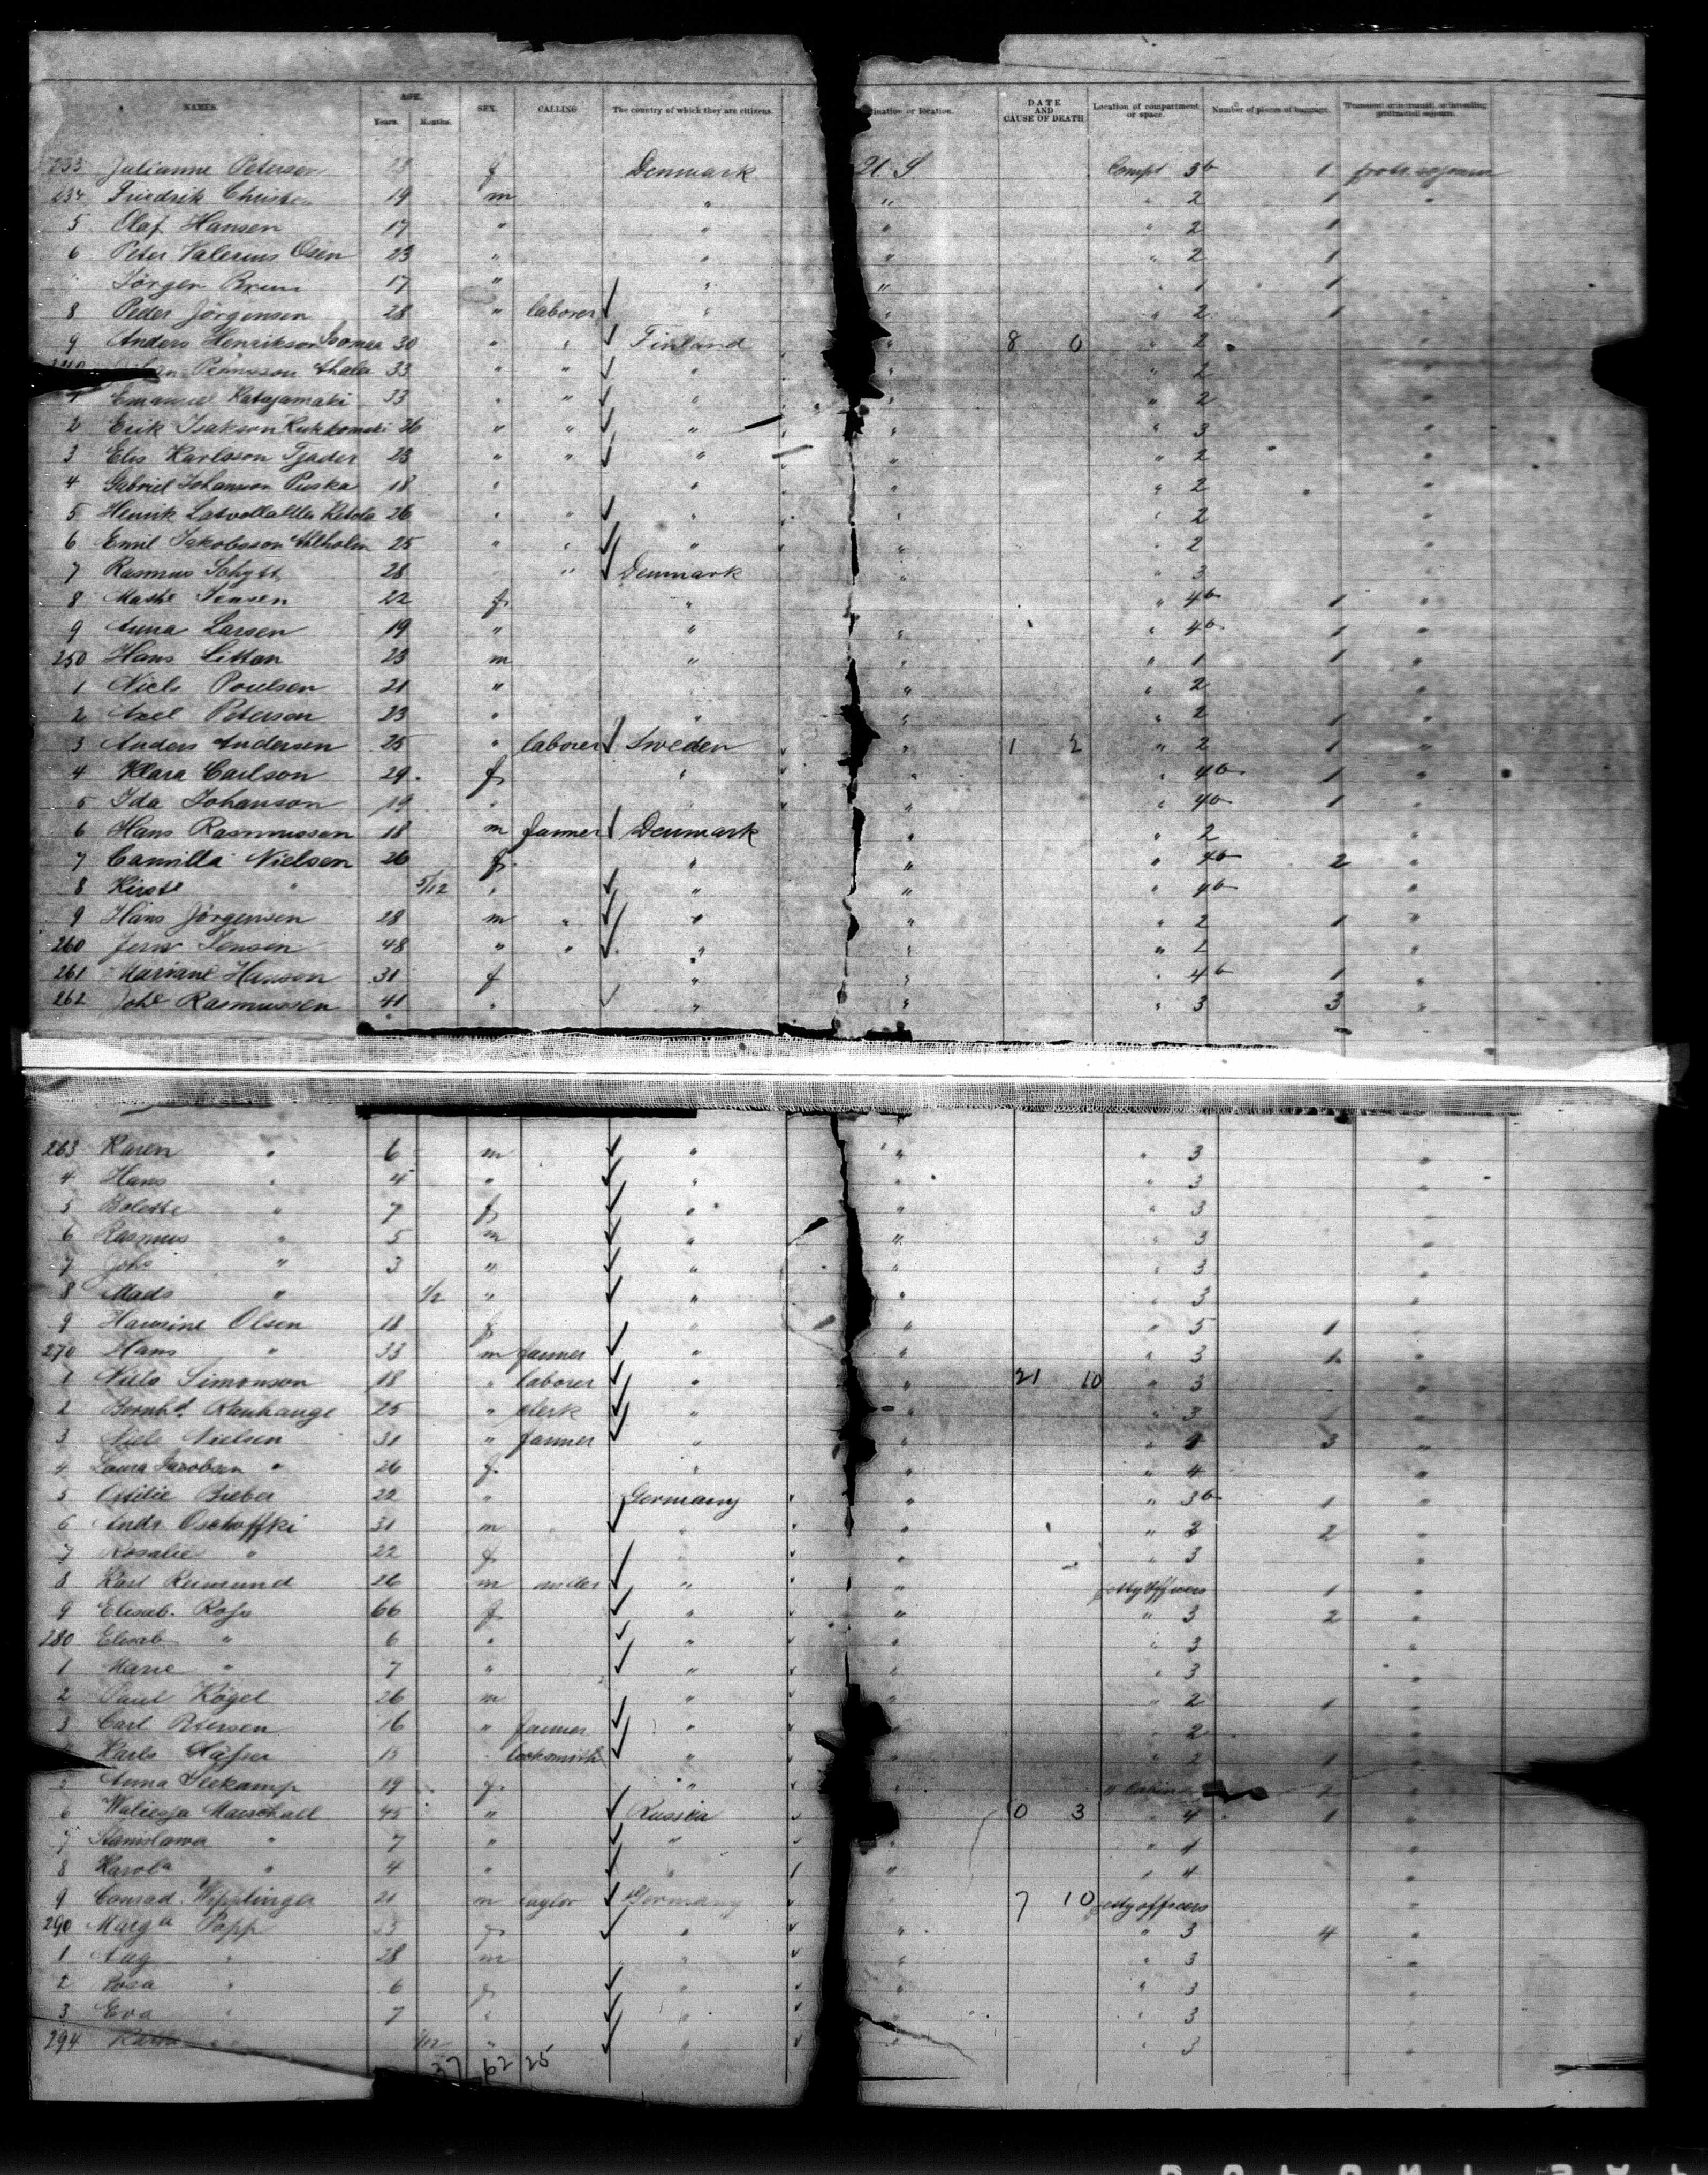 NAMES. AGE. Years. Months. SEX. CALLING The country of which they are citizens. ination or location. DATE AND CAUSE OF DEATH Location of compartment or space. Number of pieces of baggage. Transient or in transit, or intending protracted sojourn.
233 Julianne Petersen 23 f Denmark U S Compt 3b 1 protr. sojourn
234 Friedrik Christe 19 m " " " 2 1 "
5 Olaf Hansen 17 " " " " 2 1
6 Peter Valerius Osen 23 " " " " 2 1
Jörgen Bruun 17 " " " " 1 1
8 Peder Jörgensen 28 " laborer " " " 2 1 "
9 Anders Henrikson 30 " " Finland " 8 0 " 2 "
33 " " " " " 2 "
1 Emanuel Katajamaki 33 " " " " " 2 "
2 Erik Isakson 26 " " " " " 3 "
3 Elis Karlsson Tjader 23 " " " " " 2 "
4 Gabriel Johansson Puska 18 " " " " 2 "
5 Henrik Ketola 26 " " " " " 2 "
6 Emil Jakobsson Ahlholm 25 " " " " " 2 "
7 Rasmus Schytt 28 " Denmark " " 3 "
8 Mathe Jensen 22 f " " 4b 1 "
9 Anna Larsen 19 " " " " 4b 1 "
250 Hans Litton 23 m " " " 1 1 "
1 Niels Poulsen 21 " " " " 2 "
2 Axel Peterson 23 " " " " 2 1 "
3 Anders Andersen 25 " laborer Sweden " 1 2 " 2 1 "
4 Klara Carlson 29 f " " " 4b 1 "
5 Ida Johanson 19 " " " " 4b 1 "
6 Hans Rasmussen 18 m farmer Denmark " " 2 "
7 Camilla Nielsen 26 f " " " 4b 2 "
8 Kirste " 5/12 " " " " 4b "
9 Hans Jörgensen 28 m " " " " 2 1 "
260 Jens Jensen 48 " " " " " 2 "
261 Mariane Hansen 31 f " " " 4b 1 "
262 Johe Rasmussen 41 " " " " 3 3 "
263 Karen " 6 m " " " 3 "
4 Hans " 4 " " " " 3 "
5 Bolette " 7 f " " " 3 "
6 Rasmus " 5 m " " " 3 "
7 Johs " 3 " " " " 3 "
8 Mads " 1/2 " " " " 3 "
9 Hansine Olsen 18 f " " " 5 1 "
270 Hans " 33 m farmer " " " 3 1 "
1 Niels Simonson 18 " laborer " " 21 10 " 3 "
2 Bernhd. 25 " clerk " " " 3 "
3 Niels Nielsen 31 " farmer " " " 4 3 "
4 Laura Jacobsen " 26 f " " " 4 "
5 Ottilie Bieber 22 " Germany " " 3b 1 "
6 Andr. Oschoffki 31 m " " " 3 2 "
7 Rosalie " 22 f " " " 3 "
8 Karl Reimund 26 m miller " " petty officers 1 "
9 Elisab. Rohs 66 f " " " 3 2 "
280 Elisab " 6 " " " " 3 "
1 Marie " 7 " " " " 3 "
2 Paul Kögel 26 m " " " 2 1 "
3 Carl Petersen 16 " farmer " " " 2 "
Karls Häfner 15 " locksmith " " " 2 1 "
5 Anna 19 f " " " cabin "
6 Marschall 45 " Russia " 0 3 " 4 1 "
7 Stanislawa " 7 " " " " 4 "
8 Karola " 4 " " " " 4 "
9 Conrad Wipplinger 21 m taylor Germany " 7 10 petty officers "
290 Marga Popp f " " " 3 4 "
1 Aug " 28 m " " " 3 "
2 Rosa " 6 f " " " 3 "
3 Eva " 7 " " " " 3 "
294 " 1/12 " " " " 3 "
37 62 25